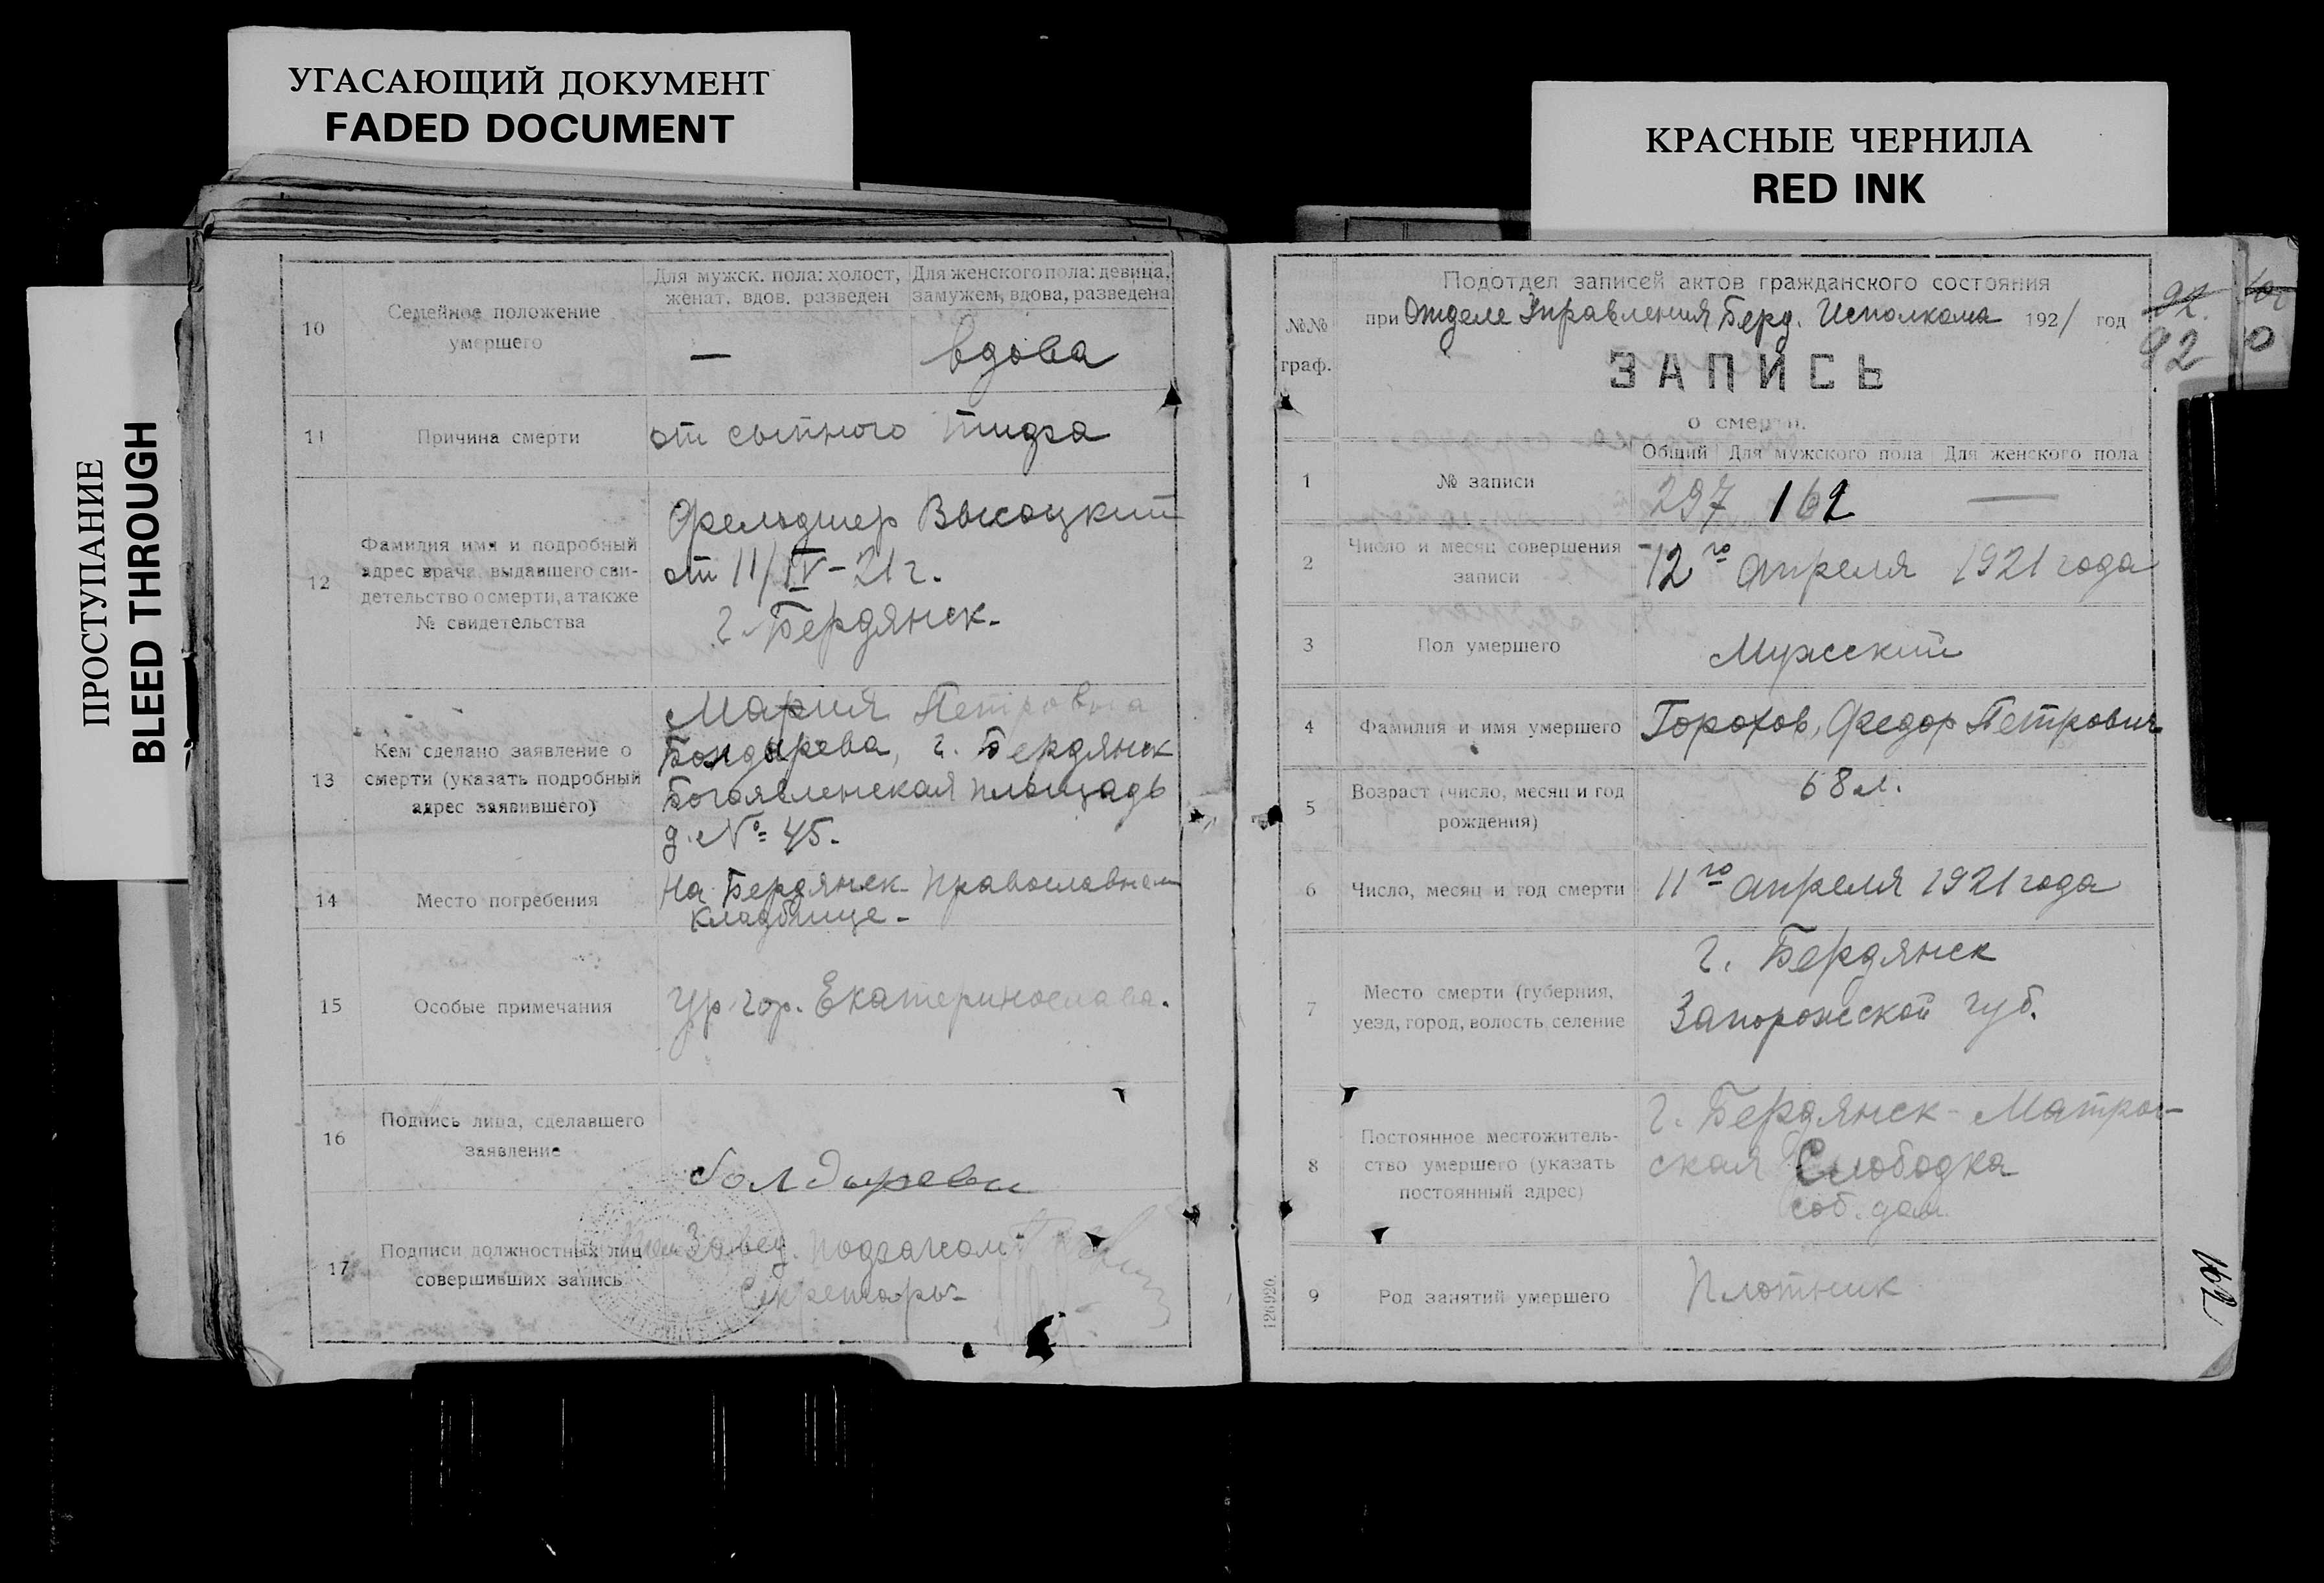 УГАСАЮЩИЙ ДОКУМЕНТ
FADED DOCUMENT
КРАСНЫЕ ЧЕРНИЛА
RED INK
ПРОСТУПАНИЕ
BLEED THROUGH
10
Семейное положение
умершего
Для мужск. пола: холост,
женат, вдов. разведен
Для женского пола: девица,
замужем, вдова, разведена
—
вдова
11
Причина смерти
от сыпного тифа
12
Фамилия имя и подробный
адрес врача, выдавшего сви-
детельство о смерти, а также
№ свидетельства
Фельдшер Высоцкий
от 11/IV-21 г.
г. Бердянск.
13
Кем сделано заявление о
смерти (указать подробный
адрес заявившего)
Мария Петровна
Бондырева, г. Бердянск
Богоявленская площадь
д. № 45.
14
Место погребения
На Бердянск. Православном
кладбище.
15
Особые примечания
Ур. гор. Екатеринослава.
16
Подпись лица, сделавшего
заявление
Болдырева
17
Подписи должностных лиц
совершивших запись
Завед. Подзагсом
Секретарь
№№
граф.
Подотдел записей актов гражданского состояния
при Отделе Управления Берд. Исполкома 1921 год
92
ЗАПИСЬ
о смерти.
1
№ записи
Общий
Для мужского пола
Для женского пола
297
162
—
2
Число и месяц совершения
записи
12го апреля 1921 года
3
Пол умершего
Мужской
4
Фамилия и имя умершего
Горохов, Федор Петрович
5
Возраст (число, месяц и год
рождения)
68 л.
6
Число, месяц и год смерти
11го апреля 1921 года
7
Место смерти (губерния,
уезд, город, волость селение
г. Бердянск
Запорожской губ.
8
Постоянное местожитель-
ство умершего (указать
постоянный адрес)
г. Бердянск Матрос-
ская Слободка
соб. дом.
9
Род занятий умершего
Плотник
126920.
162